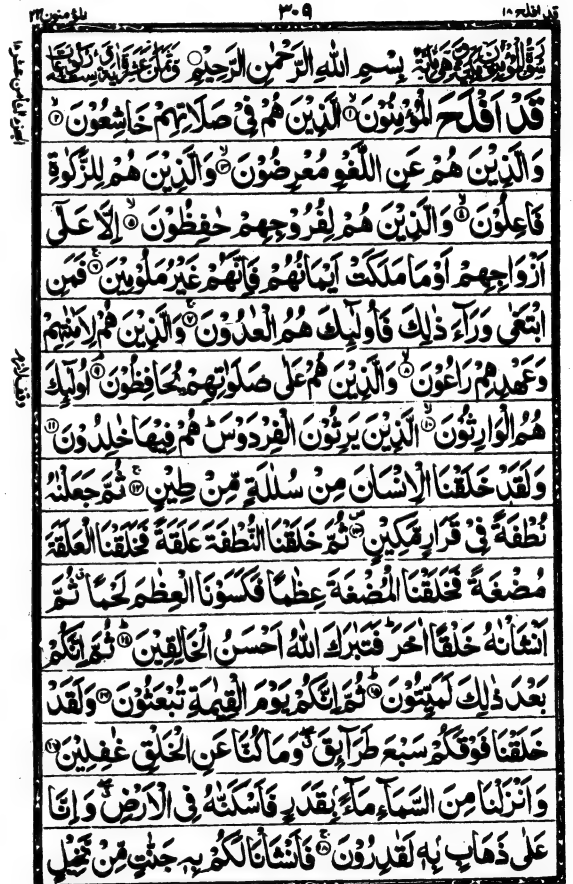 قد افلح ۱۸ ۳۰۹ المؤمنون ۲۳
بِسْمِ اللهِ الرَّحْمٰنِ الرَّحِيْمِ
قَدْ اَفْلَحَ الْمُؤْمِنُوْنَ ۙ﴿۱﴾ الَّذِيْنَ هُمْ فِىْ صَلَاتِهِمْ خَاشِعُوْنَ ۙ﴿۲﴾
وَالَّذِيْنَ هُمْ عَنِ اللَّغْوِ مُعْرِضُوْنَ ۙ﴿۳﴾ وَالَّذِيْنَ هُمْ لِلزَّكٰوةِ
فَاعِلُوْنَ ۙ﴿۴﴾ وَالَّذِيْنَ هُمْ لِفُرُوْجِهِمْ حٰفِظُوْنَ ۙ﴿۵﴾ اِلَّا عَلٰٓى
اَزْوَاجِهِمْ اَوْ مَا مَلَكَتْ اَيْمَانُهُمْ فَاِنَّهُمْ غَيْرُ مَلُوْمِيْنَ ۚ﴿۶﴾ فَمَنِ
ابْتَغٰى وَرَآءَ ذٰلِكَ فَاُولٰٓئِكَ هُمُ الْعٰدُوْنَ ۚ﴿۷﴾ وَالَّذِيْنَ هُمْ لِاَمٰنٰتِهِمْ
وَعَهْدِهِمْ رَاعُوْنَ ۙ﴿۸﴾ وَالَّذِيْنَ هُمْ عَلٰى صَلَوٰتِهِمْ يُحَافِظُوْنَ ۘ﴿۹﴾ اُولٰٓئِكَ
هُمُ الْوَارِثُوْنَ ۙ﴿۱۰﴾ الَّذِيْنَ يَرِثُوْنَ الْفِرْدَوْسَ ؕ هُمْ فِيْهَا خٰلِدُوْنَ ﴿۱۱﴾
وَلَقَدْ خَلَقْنَا الْاِنْسَانَ مِنْ سُلٰلَةٍ مِّنْ طِيْنٍ ۚ﴿۱۲﴾ ثُمَّ جَعَلْنٰهُ
نُطْفَةً فِىْ قَرَارٍ مَّكِيْنٍ ۪﴿۱۳﴾ ثُمَّ خَلَقْنَا النُّطْفَةَ عَلَقَةً فَخَلَقْنَا الْعَلَقَةَ
مُضْغَةً فَخَلَقْنَا الْمُضْغَةَ عِظٰمًا فَكَسَوْنَا الْعِظٰمَ لَحْمًا ۗ ثُمَّ
اَنْشَاْنٰهُ خَلْقًا اٰخَرَ ؕ فَتَبٰرَكَ اللهُ اَحْسَنُ الْخَالِقِيْنَ ؕ﴿۱۴﴾ ثُمَّ اِنَّكُمْ
بَعْدَ ذٰلِكَ لَمَيِّتُوْنَ ؕ﴿۱۵﴾ ثُمَّ اِنَّكُمْ يَوْمَ الْقِيٰمَةِ تُبْعَثُوْنَ ﴿۱۶﴾ وَلَقَدْ
خَلَقْنَا فَوْقَكُمْ سَبْعَ طَرَآئِقَ ۖ وَمَا كُنَّا عَنِ الْخَلْقِ غٰفِلِيْنَ ﴿۱۷﴾
وَاَنْزَلْنَا مِنَ السَّمَآءِ مَآءً بِقَدَرٍ فَاَسْكَنّٰهُ فِى الْاَرْضِ ۖ وَاِنَّا
عَلٰى ذَهَابٍ بِهٖ لَقٰدِرُوْنَ ۚ﴿۱۸﴾ فَاَنْشَاْنَا لَكُمْ بِهٖ جَنّٰتٍ مِّنْ نَّخِيْلٍ